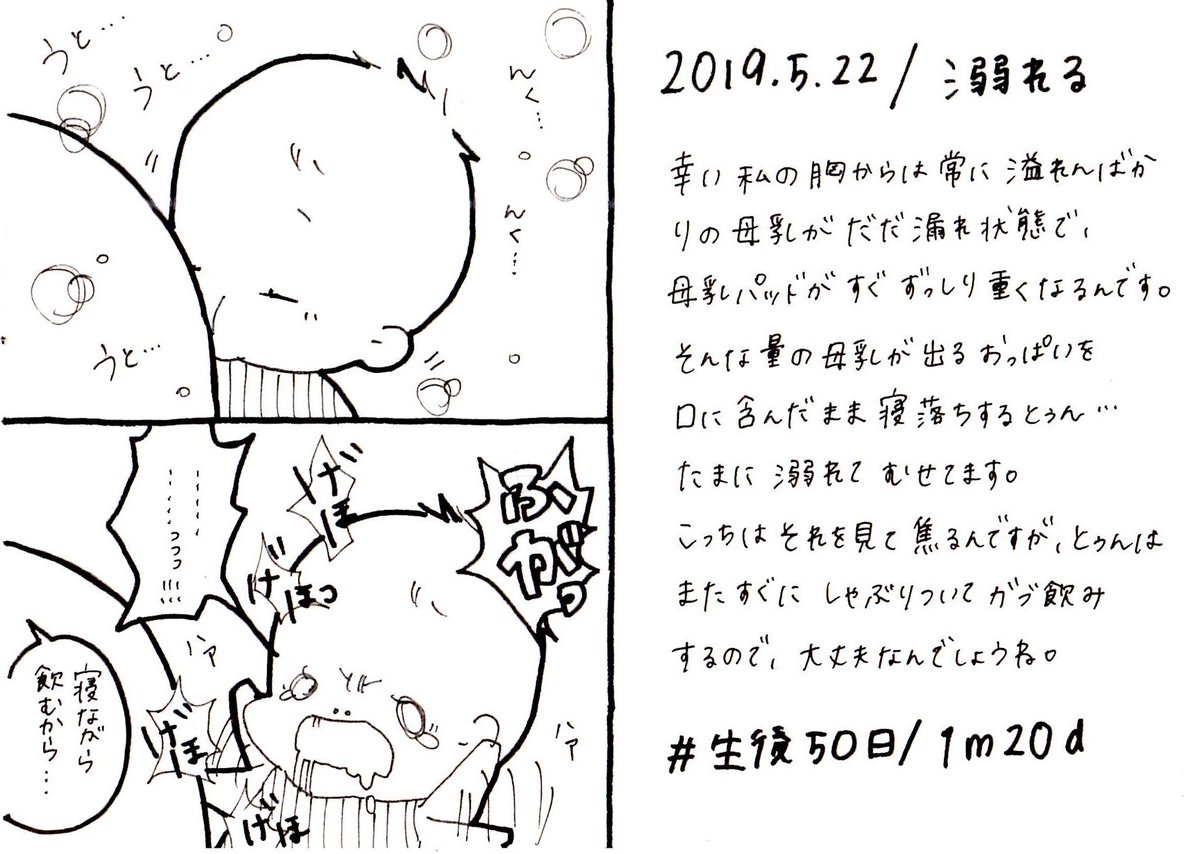 うと…
うと…
んく…
んく…
うと…
ふがっ
げほ
げほっ
…………っっっ!!!
ハァ
ハァ
げほ
げほ
寝ながら
飲むから…
2019.5.22/溺れる
幸い私の胸からは常に溢れんばか
りの母乳がだだ漏れ状態で、
母乳パッドがすぐずっしり重くなるんです。
そんな量の母乳が出るおっぱいを
口に含んだまま寝落ちするとぅん…
たまに溺れてむせてます。
こっちはそれを見て焦るんですが、とぅんは
またすぐにしゃぶりついてガブ飲み
するので、大丈夫なんでしょうね。
#生後50日/1m20d